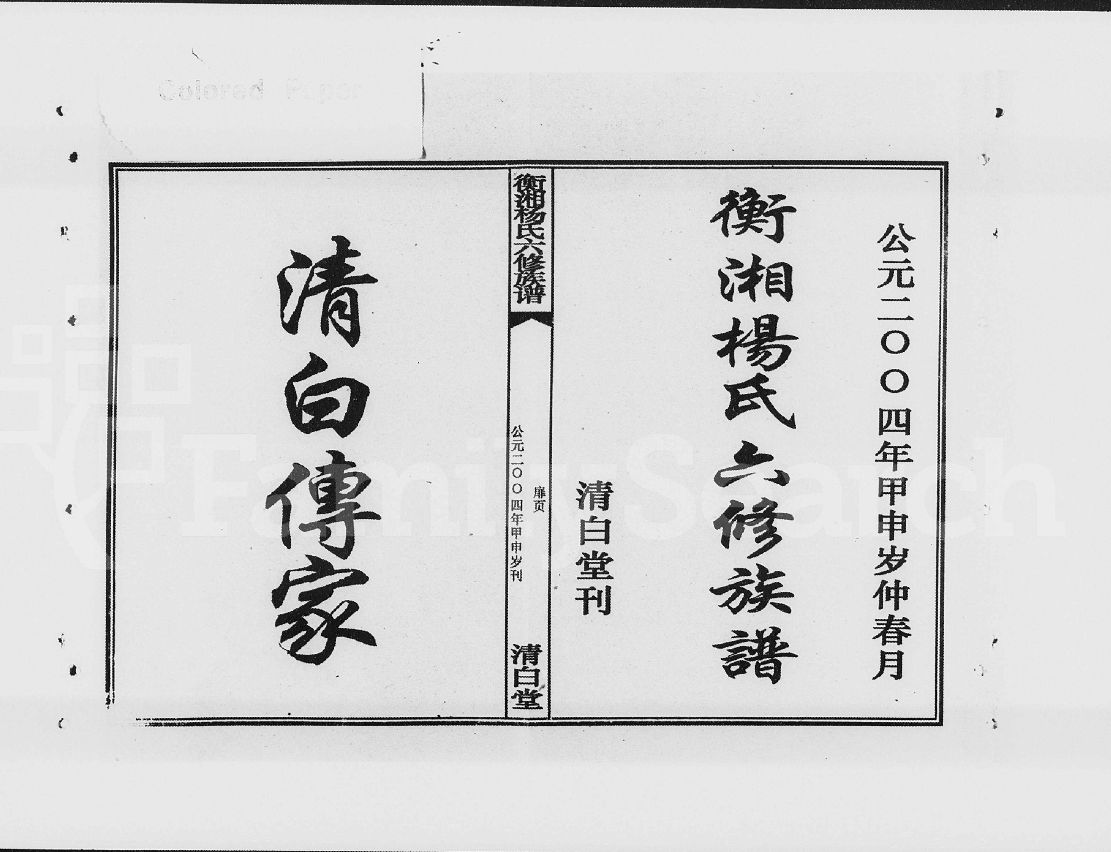 公元二〇〇四年甲申岁仲春月
衡湘楊氏六修族譜
清白堂刊
衡湘杨氏六修族谱
扉页
公元二〇〇四年甲申岁刊
清白堂
清白傳家
Colored Paper
FamilySearch